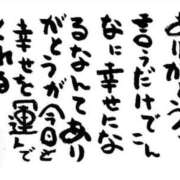 ありがとうが
言うだけでこん
なに幸せにな
るなんてあり
がとうが今日も
幸せを運んで
くれる